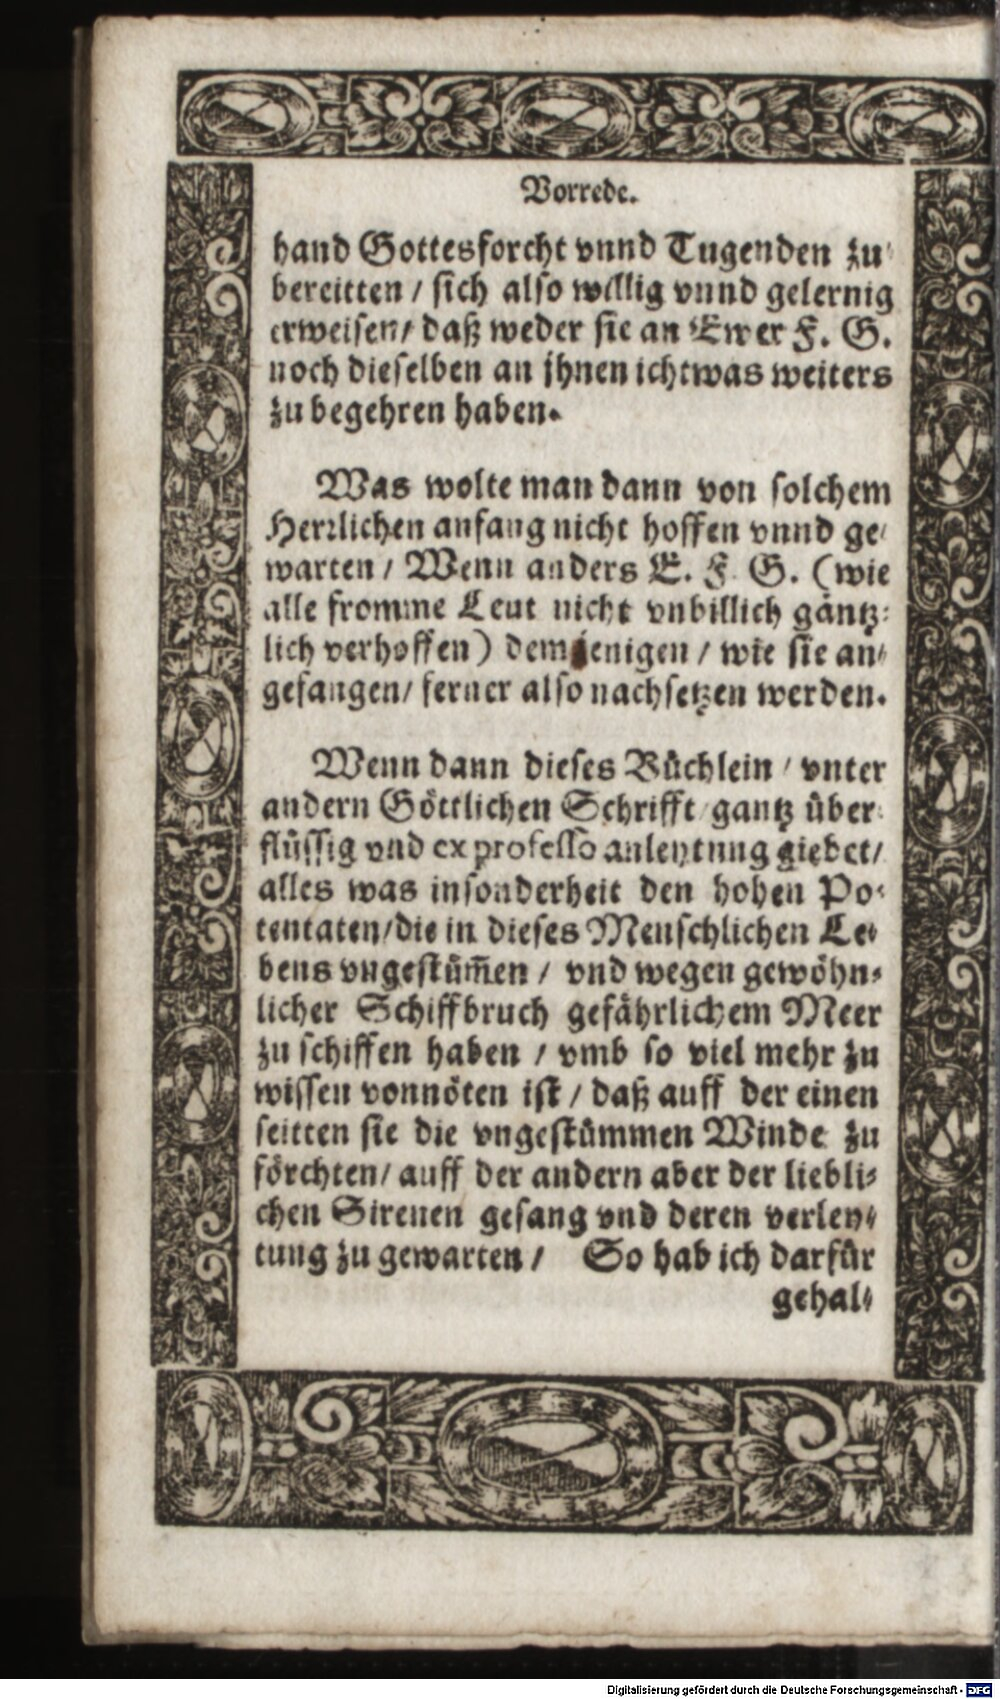 Vorrede.
hand Gottesforcht vnnd Tugenden zu-
bereitten / sich also willig vnnd gelernig
erweisen / daß weder sie an Ewer F. G.
noch dieselben an jhnen ichtwas weiters
zu begehren haben.
Was wolte man dann von solchem
Herrlichen anfang nicht hoffen vnnd ge-
warten / Wenn anders E. F. G. (wie
alle fromme Leut nicht vnbillich gäntz-
lich verhoffen) demjenigen / wie sie an-
gefangen / ferner also nachsetzen werden.
Wenn dann dieses Büchlein / vnter
andern Göttlichen Schrifft / gantz über-
flüssig vnd ex professo anleytung giebet /
alles was insonderheit den hohen Po-
tentaten / die in dieses Menschlichen Le-
bens vngestüm̄en / vnd wegen gewöhn-
licher Schiffbruch gefährlichem Meer
zu schiffen haben / vmb so viel mehr zu
wissen vonnöten ist / daß auff der einen
seitten sie die vngestümmen Winde zu
förchten / auff der andern aber der liebli-
chen Sirenen gesang vnd deren verley-
tung zu gewarten / So hab ich darfür
gehal-
Digitalisierung gefördert durch die Deutsche Forschungsgemeinschaft - DFG